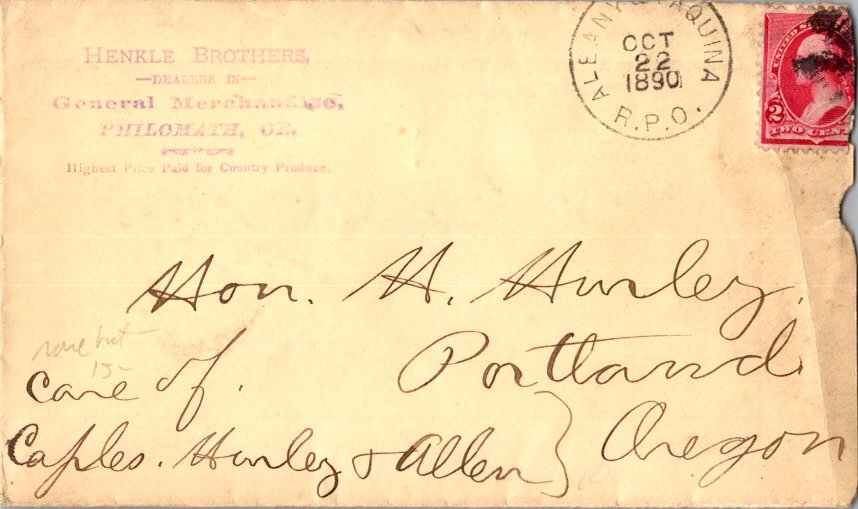 HENKLE BROTHERS,
—DEALERS IN—
General Merchandise,
PHILOMATH, OR.
Highest Price Paid for Country Produce.
ALBANY & YAQUINA
OCT
22
1890
R.P.O.
UNITED STATES
2
TWO CENT
Hon. H. Hurley.
Portland
Oregon
rare but
15-
Care of.
Caples. Hurley & Allen